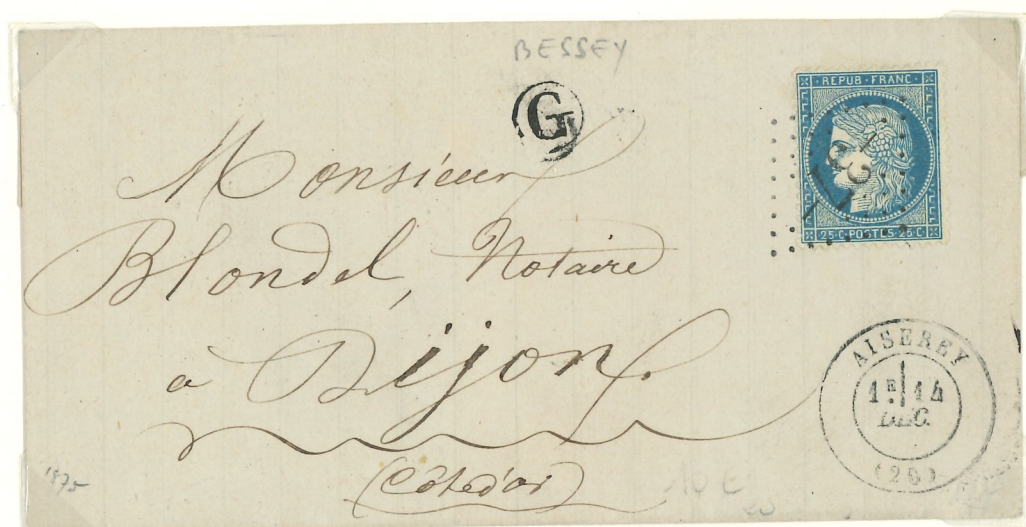 BESSEY
G
REPUB·FRANC
25·C·POSTES·25·C
Monsieur
Blondel, Notaire
a Dijon.
(Côte d'or)
AISEREY
1E 14
DEC.
(20)
1875
10 €
20